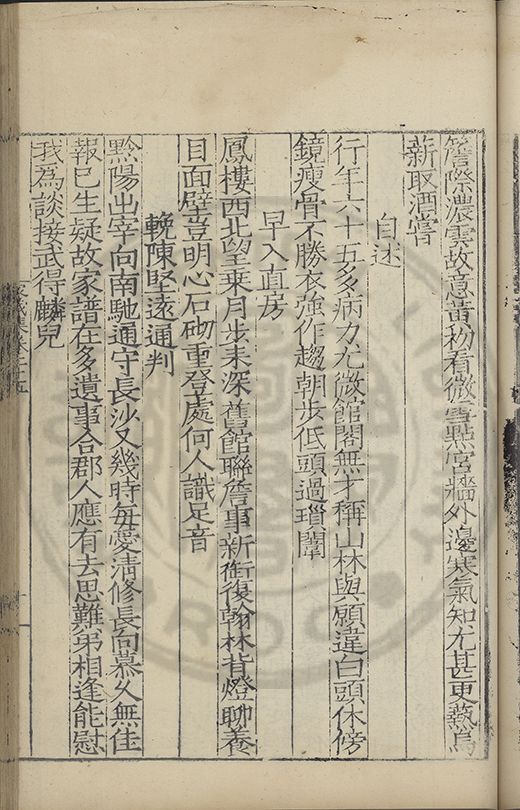 簷際濃雲故意黃粉看微雪點宮牆外邊寒氣知尤甚更爇烏
薪取酒嘗
自述
行年六十五多病力尤微館閣無才稱山林與願違白頭休傍
鏡瘦骨不勝衣強作趨朝步低頭過瑣闈
早入直房
鳳樓西北望乗月步未深舊館聯詹事新銜復翰林背燈聊養
目面壁豈明心石砌重登處何人識足音
輓陳堅遠通判
黔陽出宰向南馳通守長沙又幾時每愛清修長向慕久無佳
報已生疑故家譜在多遺事合郡人應有去思難弟相逢能慰
我為談接武得麟兒